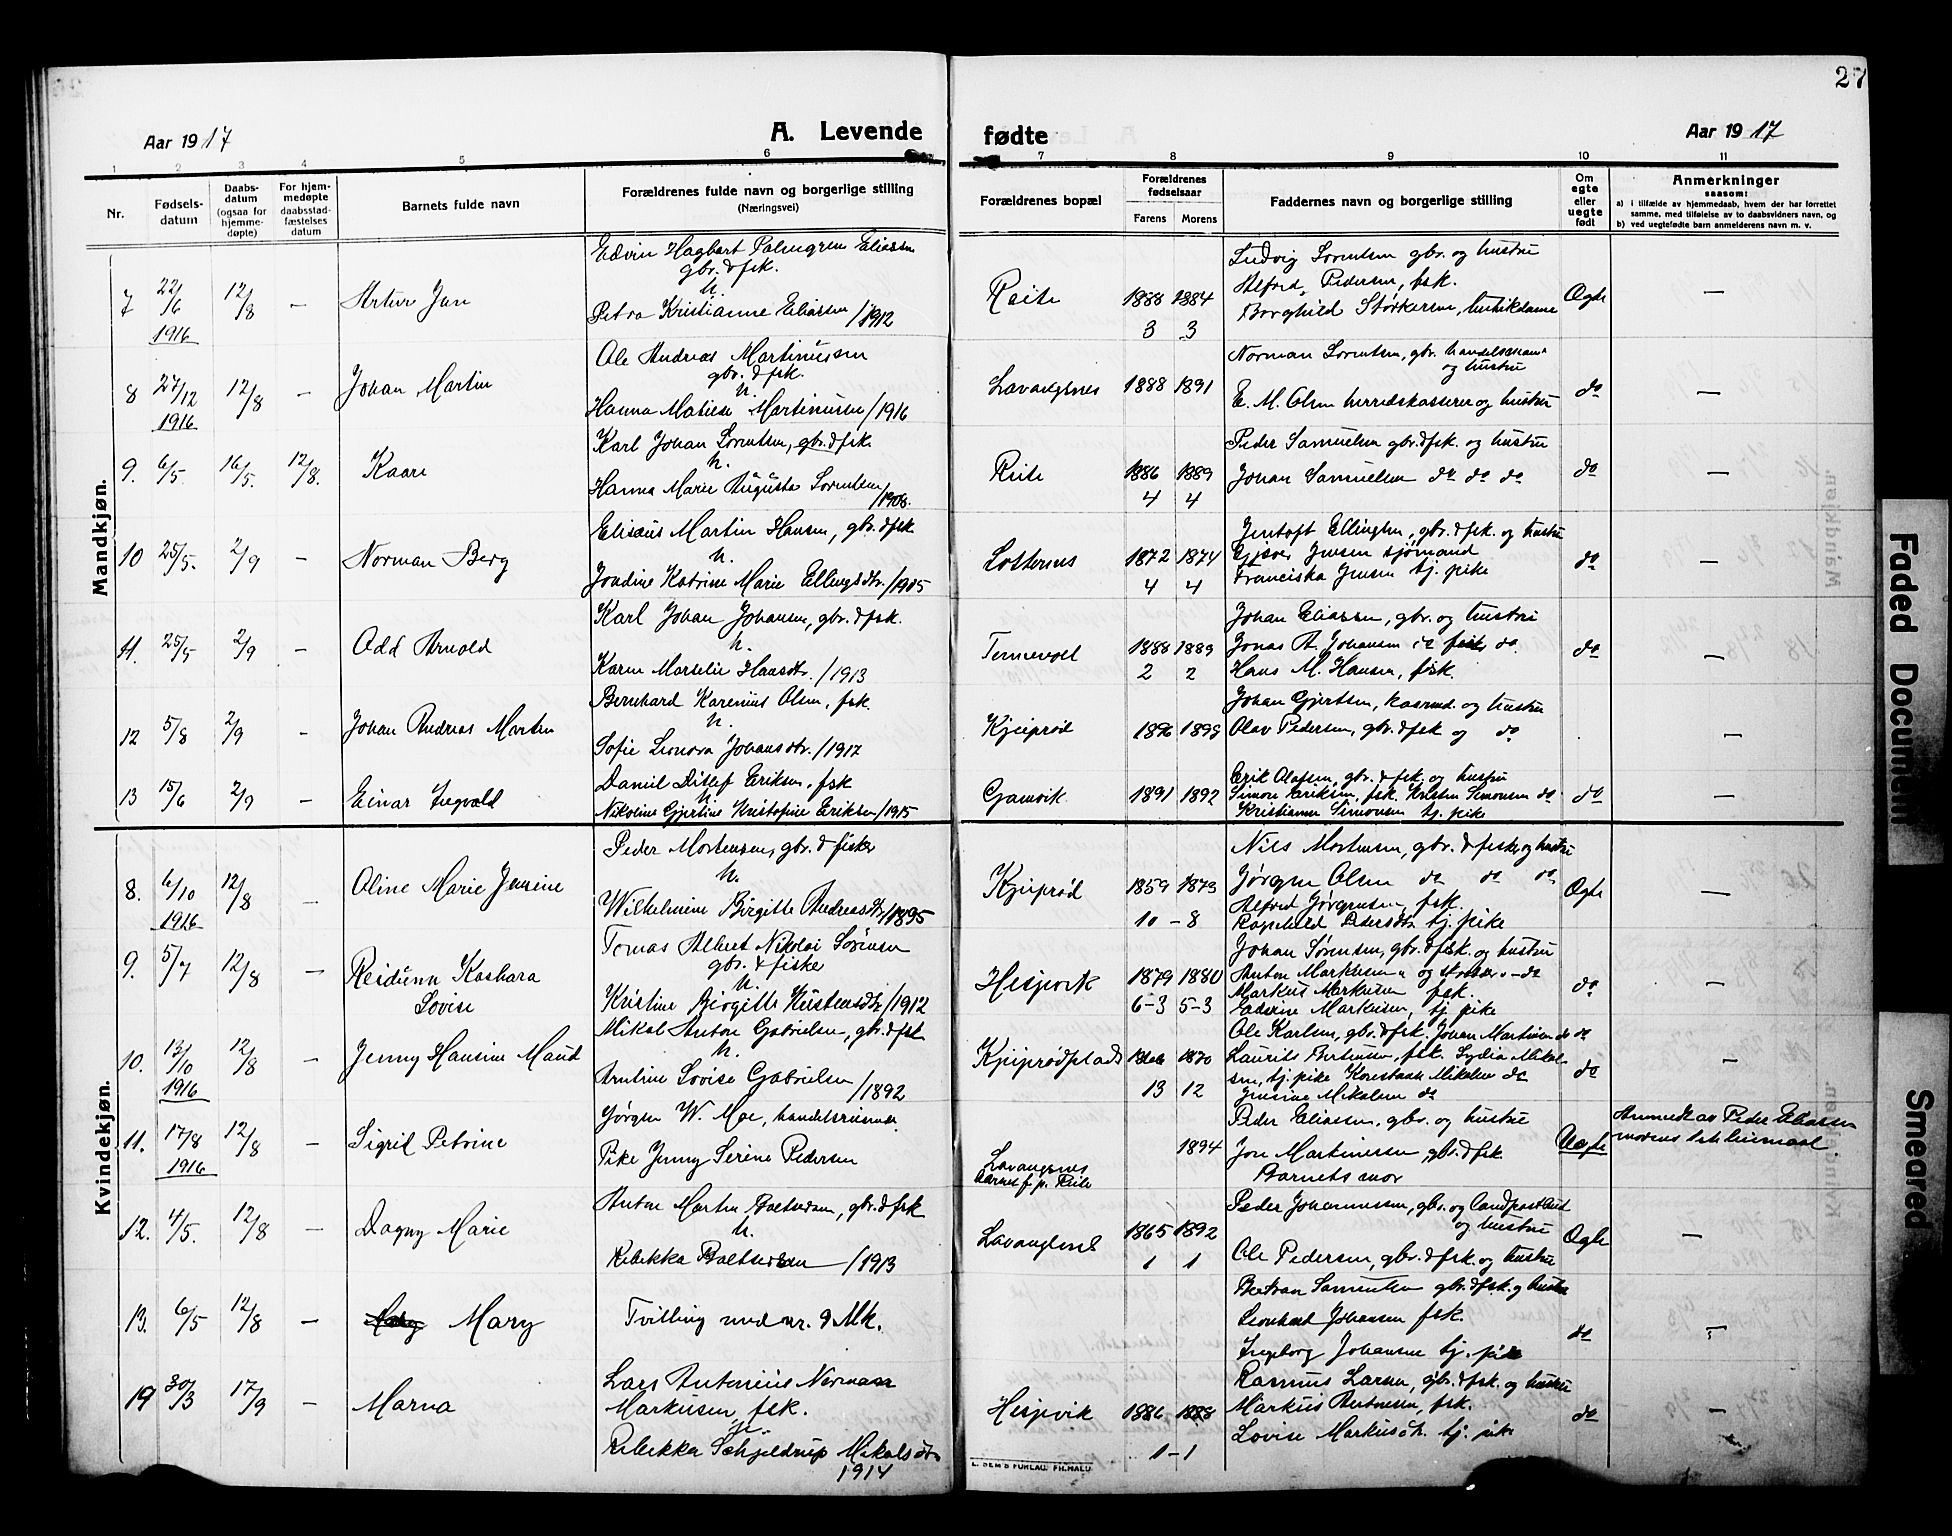 27
Aar 1917
A. Levende
fødte
Aar 1917
1 2 3 4 5 6 7 8 9 10 11
Nr.
Fødsels-
datum
Daabs-
datum
(ogsaa for
hjemme-
døpte)
For hjem-
medøpte
daabsstad-
fæstelses
datum
Barnets fulde navn
Forældrenes fulde navn og borgerlige stilling
(Næringsvei)
Forældrenes bopæl
Forældrenes
fødselsaar
Farens Morens
Faddernes navn og borgerlige stilling
Om
egte
eller
uegte
født
Anmerkninger
saasom:
a) i tilfælde av hjemmedaab, hvem der har forrettet
samme, med tilføielse av to daabsvidners navn, og
b) ved uegtefødte barn anmelderens navn m. v.
Mandkjøn.
7 22/6 1916 12/8 — Artur Jan
Edvin Hagbart Palmgren Eliassen
gbr. & fsk.
h.
Petra Kristianne Eliassen /1912
Reite 1888 1884
3 3
Ludvig Sørentsen gbr. og hustru
Alfred Pedersen, fsk.
Borghild Størkersen,
Egte —
8 27/12 1916 12/8 — Johan Martin
Ole Andreas Martinussen
gbr. & fsk.
h.
Hanna Matiese Martinussen /1916
Lavangsnes 1888 1891
Norman Sorentsen, gbr. handelsmann
og hustru
E. M. Olsen herredskasserer og hustru
do —
9. 6/5. 16/5. 12/8. Kaare
Karl Johan Sørentsen, gbr. & fsk.
h.
Hanna Marie Augusta Sorentsen /1908.
Reite 1886 1889
4 4
Peder Samuelsen gbr. & fsk. og hustru
Johan Samuelsen do do do
do —
10 25/5. 2/9 — Norman Berg
Elisæus Martin Hansen, gbr. & fsk
h.
Jordine Katrine Marie Ellingsdtr. /1905
1872 1874
4 4
Jentoft Ellingsen, gbr. & fsk. og hustru
Jensen sjømand
Franciska Jensen tj. pike
do —
11. 25/5 2/9 — Odd Arnold
Karl Johan Johansen, gbr. & fsk.
h.
Karen Marselie Hansdtr. /1913
Tennevoll 1888 1889
2 2
Johan Eliassen, gbr. og hustru
Jonas A. Johansen do.
Hans M. Hansen, fisk.
do —
12 5/8 2/9 — Johan Andreas Martin
Bernhard Karenius Olsen, fsk.
h.
Sofie Leonora Johansdtr. /1917
Kjeiprød 1896 1899
Johan Gjertsen, og hustru
Olav Pedersen, gbr. & fsk og do
—
13 15/6 2/9 — Einar Ingvald
Daniel Ditlef Eriksen, fsk
h.
Nikoline Gjertine Kristofine Eriksen /1915
Gamvik 1891 1892
Erik Olafsen, gbr. & fsk. og hustru
Simon Eriksen, fsk. Kristen Simonsen do
Kristianne Simonsen tj. pike
do —
Kvindekjøn.
8. 6/10 1916 12/8 — Oline Marie Jensine
Peder Mortensen, gbr. & fisker
h.
Wilhelmine Birgitte Andreasdtr /1895
Kjeiprød 1859 1873
10 - 8
Nils Mortensen, gbr. & fisker og hustru
Jørgen Olsen do do do.
Alfred Jørgensen, fsk.
Ragnhild Pedersdtr tj. pike
Egte —
9. 5/7 12/8 — Reidunn Kashara
Lovise
Tomas Albret Nikolai Sørensen
gbr. & fisker
h.
Kristine Birgitte Kristensdtr /1912
Hespevik 1879 1880
6-3 5-3
Johan Sørensen, gbr. & fsk. og hustru
Anton Markussen og
Markus Markussen fsk.
Markussen, tj. pike
do —
10. 13/10 1916 12/8 — Jenny Hansine Maud
Mikal Anton Gabrielsen, gbr. & fsk
h.
Arntine Lovise Gabrielsen /1892
Kjeiprødplads 1870
13 12
Ole Karlsen, gbr. & fsk. Johan Martinsen do do
Laurits Bertinsen, fsk. Lydia Mikal-
sen, tj. pike Mikalsen do
Jensine Mikalsen do
do —
11. 17/8 1916 12/8 — Sigrid Petrine
Jørgen W. Moe, handelsreisende.
Pike Jenny Serine Pedersen
Lavangsnes
barnet f. p. Reite
1894
Peder Eliassen, gbr. og hustru
Jon Martinussen gbr. & fsk
Barnets mor
Uegte
Anmeldt av Peder Eliassen
morens leiermaal.
12. 4/5. 12/8 — Dagny Marie
Anton Martin Baltsersen, gbr. & fsk
h.
Rebekka Baltsersen /1913
Lavangsnes 1865 1892
1 1
Peder Johannessen, gbr. og landpostbud
og hustru
Ole Pedersen, gbr. & fsk. og hustru
Egte —
13. 6/5 12/8 — Mary
Tvilling med nr. 9 Mk.
Samuelsen gbr. & fsk. og hustru
Leonhard Johansen fsk.
Ingeborg Johansen tj. pike
do
19 30/3 17/9 — Marna
Lars Antonius Norman
Markusen, fsk.
h.
Rebekka Schjeldrup Mikalsdtr
1914
Hespevik 1886 1888
1 - 1
Rasmus Larsen, gbr. & fsk. og hustru
Markus Bertinsen, fsk.
Lovise Markusdtr. tj. pike
do —
E. SEM'S FORLAG. FR.HALD.
Faded Document
Smeared